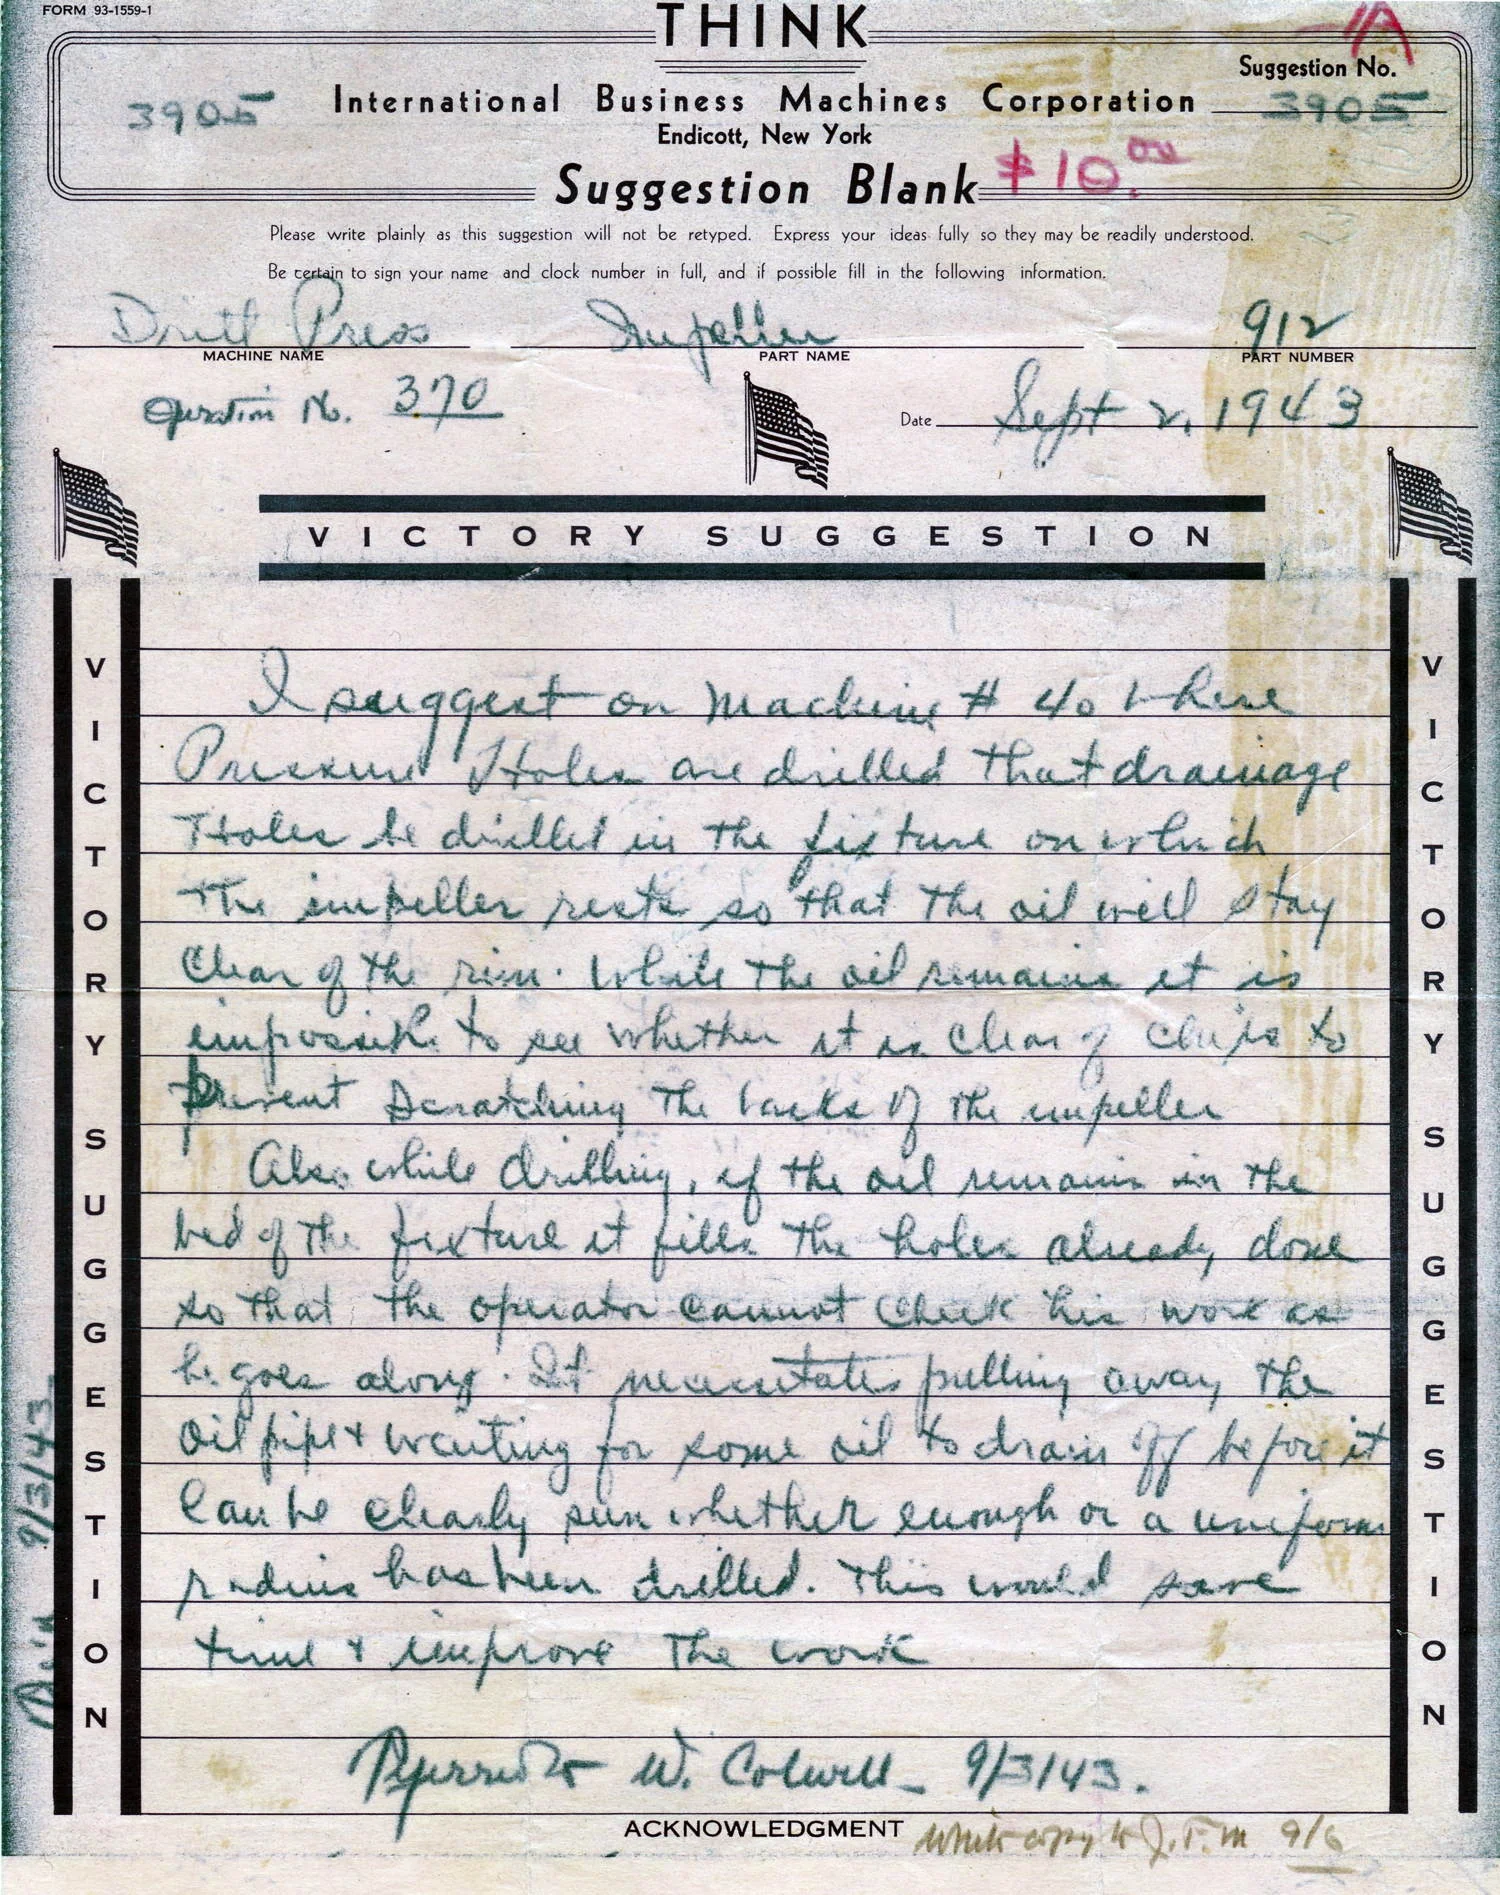 FORM 93-1559-1
THINK
1A
Suggestion No.
3905
International Business Machines Corporation
3905
Endicott, New York
Suggestion Blank
$10.00
Please write plainly as this suggestion will not be retyped. Express your ideas fully so they may be readily understood.
Be certain to sign your name and clock number in full, and if possible fill in the following information.
Drill Press Impeller 912
MACHINE NAME PART NAME PART NUMBER
Operation No. 370
Date Sept 2, 1943
VICTORY SUGGESTION
VICTORY SUGGESTION
VICTORY SUGGESTION
I suggest on Machine # 40 where
Pressure Holes are drilled that drainage
Holes be drilled in the fixture on which
The impeller rests so that the oil will stay
Clear of the rim. While the oil remains it is
impossible to see whether it is clear of chips to
prevent scratching the backs of the impeller
Also while drilling, if the oil remains in the
bed of the fixture it fills the holes already done
so that the operator cannot check his work as
he goes along. It necessitates pulling away the
oil pipe & waiting for some oil to drain off before it
can be clearly seen whether enough or a uniform
radius has been drilled. This would save
time & improve the work
W. Colwell - 9/3/43.
ACKNOWLEDGMENT
White copy to J.T.M 9/6
9/3/43